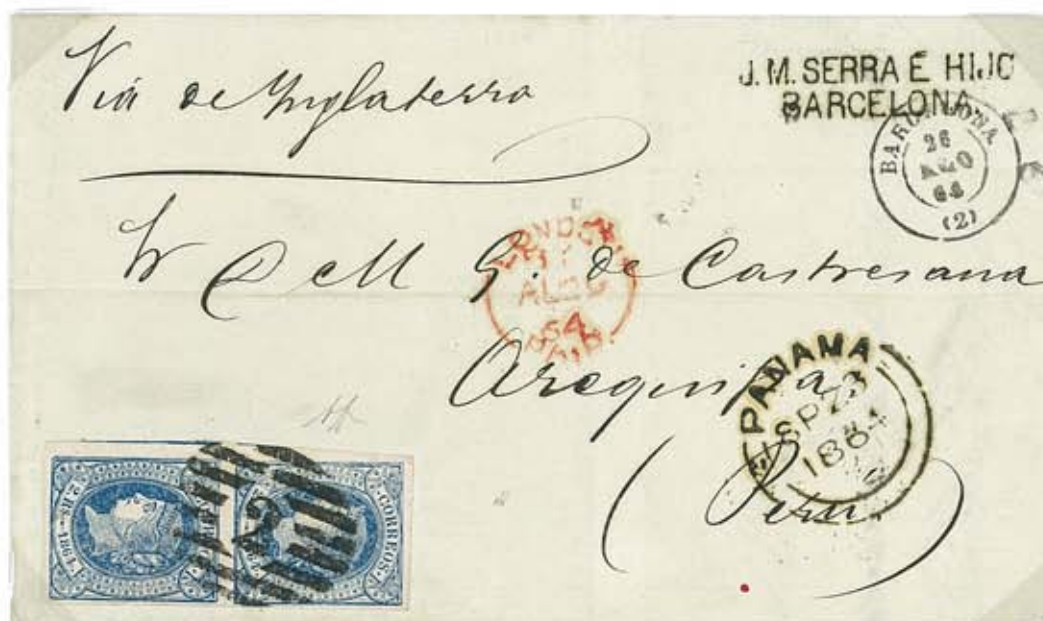 Via de Inglaterra
J. M. SERRA É HIJO
BARCELONA
BARCELONA
26
AGO
64
(2)
G. de Castresana
LONDON
AU 29
64
PAID
Arequipa
PANAMA
SP 23
1864
(Peru)
2
CORREOS
1864